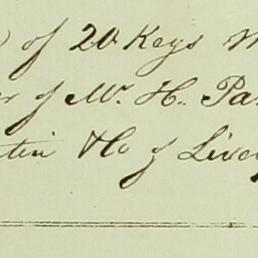 of 20 Keys
of Mr. H. Pa
tin & Co of Live